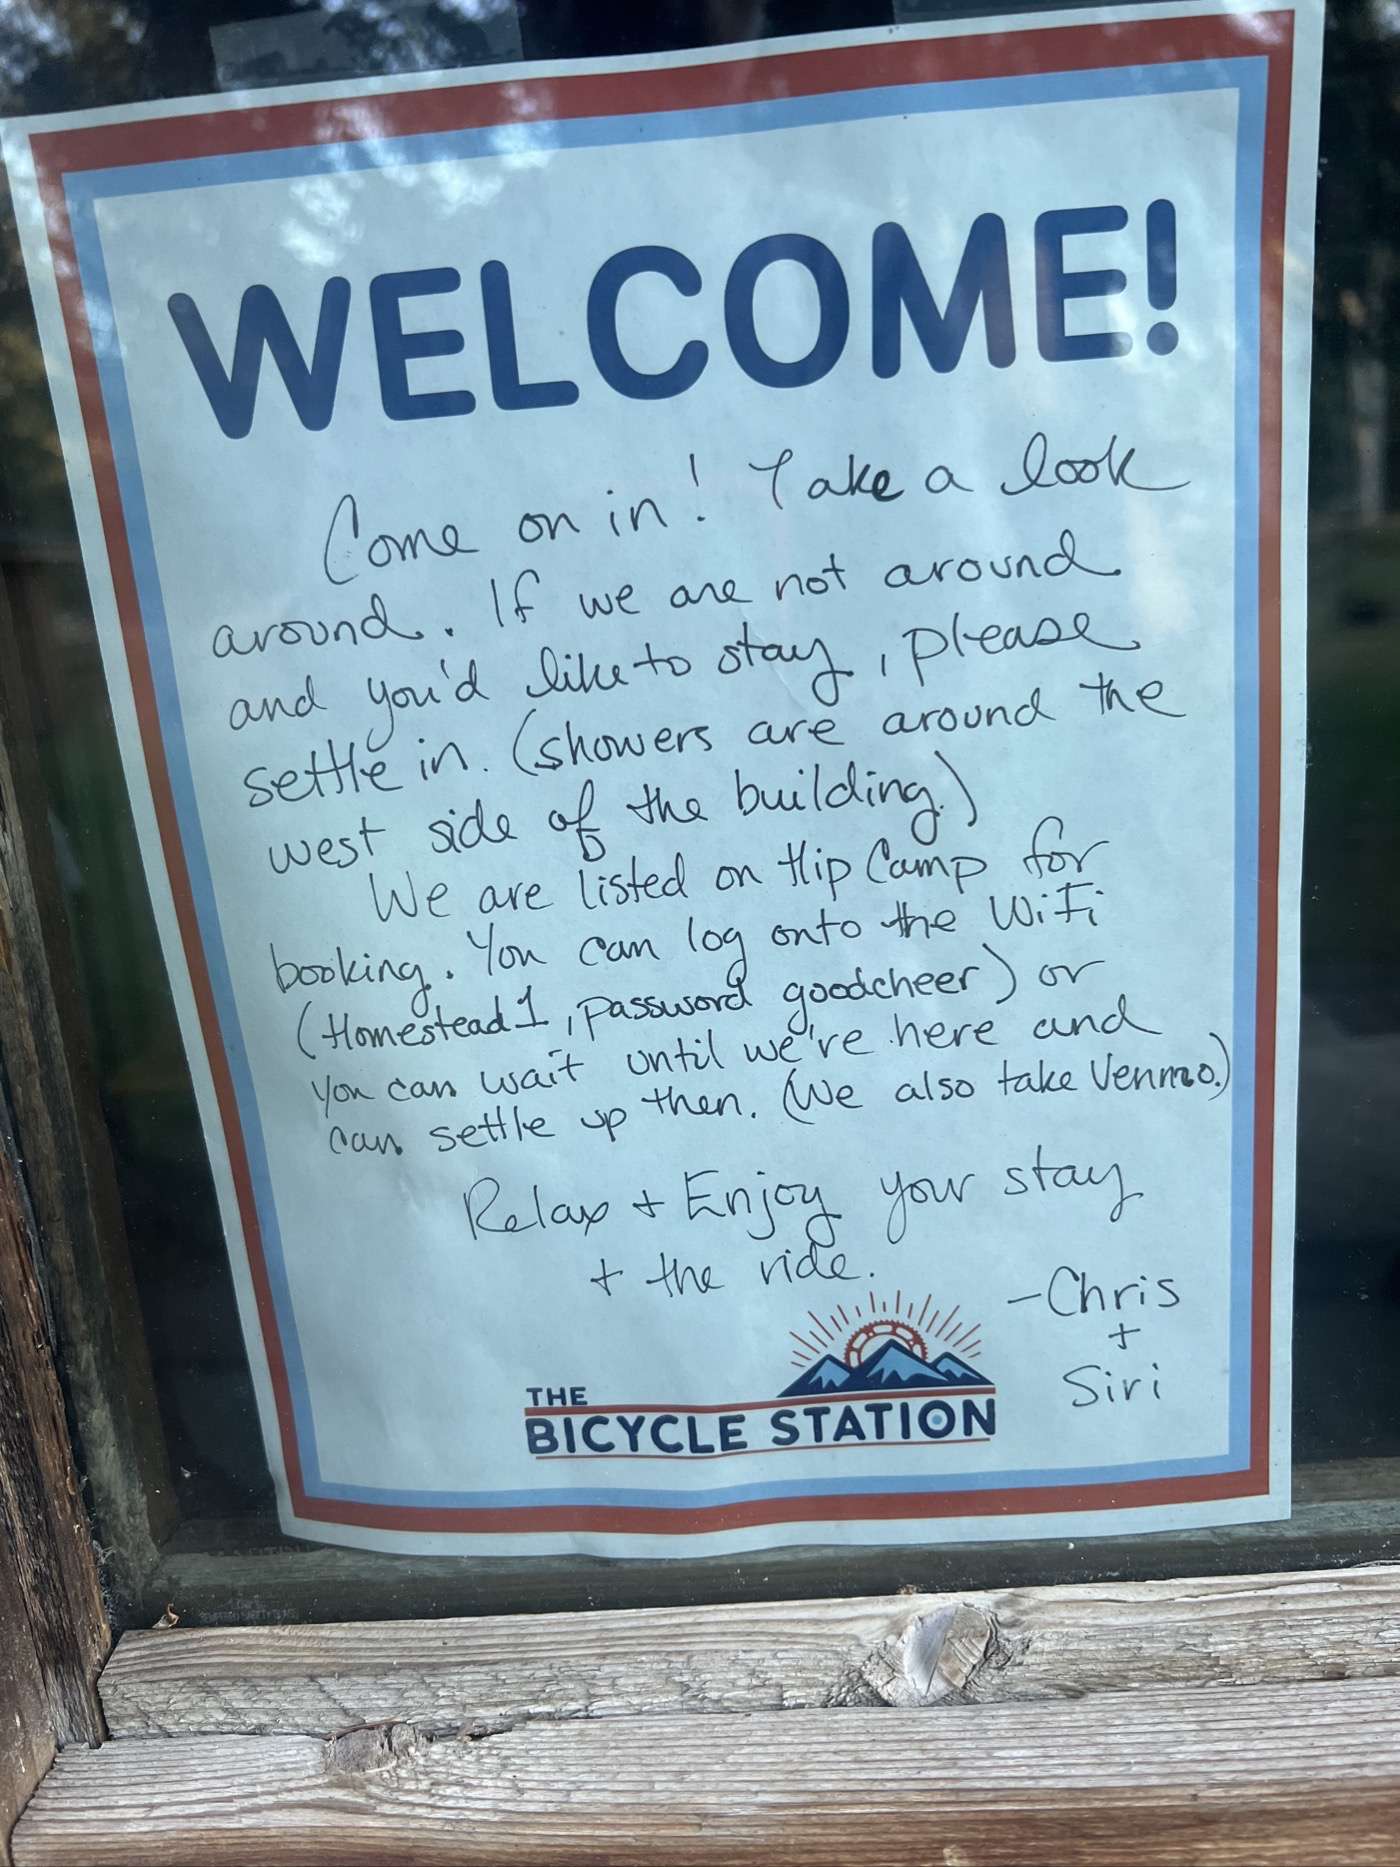 WELCOME!
Come on in! Take a look
around. If we are not around
and you'd like to stay, please
settle in. (showers are around the
west side of the building.)
We are listed on Hip Camp for
booking. You can log onto the WiFi
(Homestead1, password goodcheer) or
you can wait until we're here and
can settle up then. (We also take Venmo.)
Relax + Enjoy your stay
+ the ride.
-Chris
+
Siri
THE
BICYCLE STATION